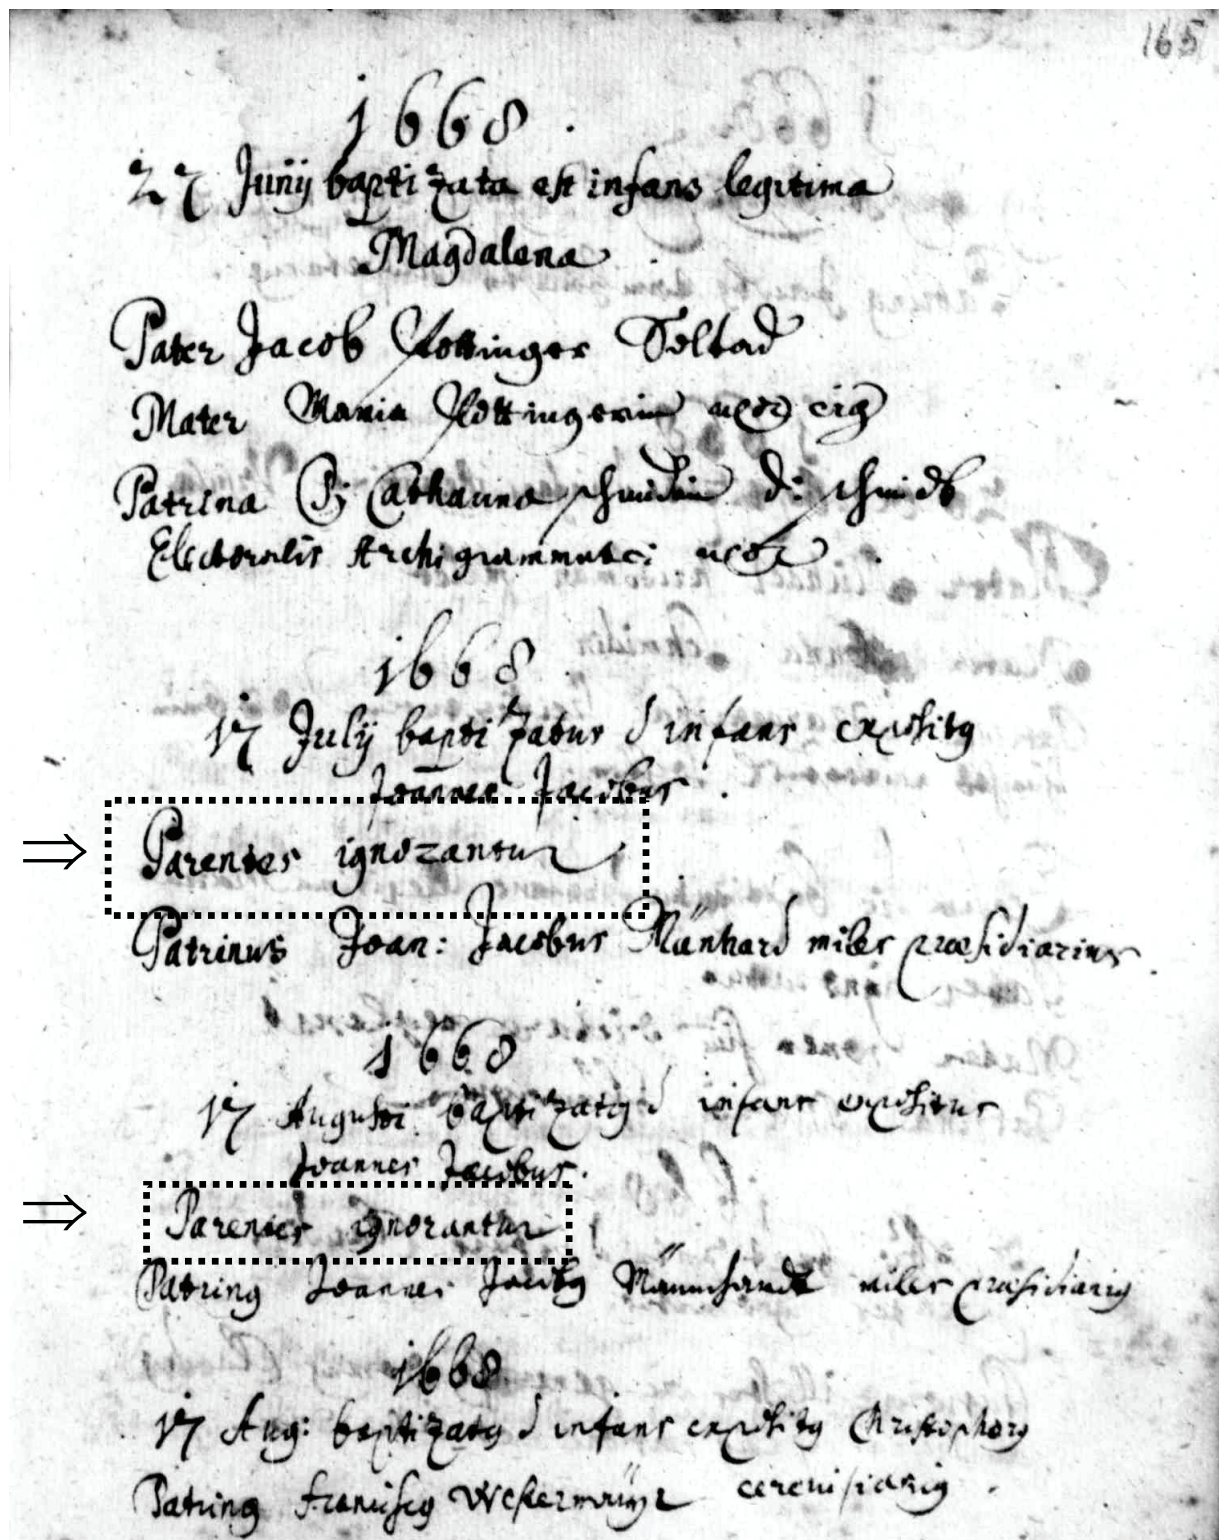 165
1668
27 Junij baptizata est infans legitima
Magdalena
Pater Jacob Soldad
Mater Maria uxor eius
Patrina Catharina Schmidin d: Schmidt
Electoralis Archigrammatei uxor
1668
17 July baptizatur infans expositus
Joannes Jacobus
Parentes ignorantur
Patrinus Joan: Jacobus Mänhard miles præsidiarius
1668
17 Augusti baptizatus infans expositus
Joannes Jacobus.
Parentes ignorantur
Patrinus Joannes Jacobus miles præsidiarius
1668
17 Aug: baptizatus infans expositus Christophorus
Patrinus Franciscus Westermayr cerevisiarius